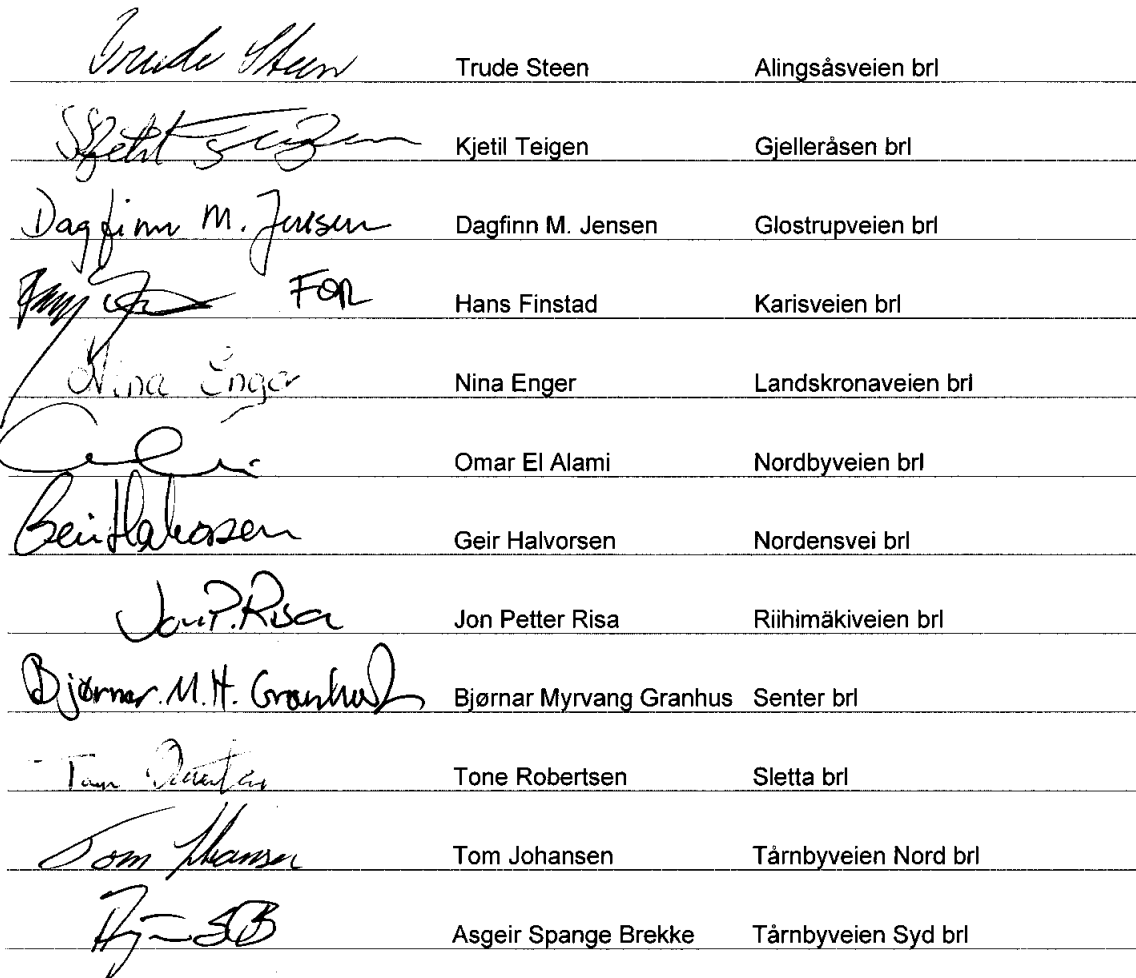 Trude Steen Trude Steen Alingsåsveien brl
Kjetil Teigen Kjetil Teigen Gjelleråsen brl
Dagfinn M. Jensen Dagfinn M. Jensen Glostrupveien brl
FOR Hans Finstad Karisveien brl
Nina Enger Nina Enger Landskronaveien brl
Omar El Alami Nordbyveien brl
Geir Halvorsen Geir Halvorsen Nordensvei brl
Jon P. Risa Jon Petter Risa Riihimäkiveien brl
Bjørnar M.H. Granhus Bjørnar Myrvang Granhus Senter brl
Tone Robertsen Sletta brl
Tom Johansen Tom Johansen Tårnbyveien Nord brl
Asgeir Spange Brekke Tårnbyveien Syd brl